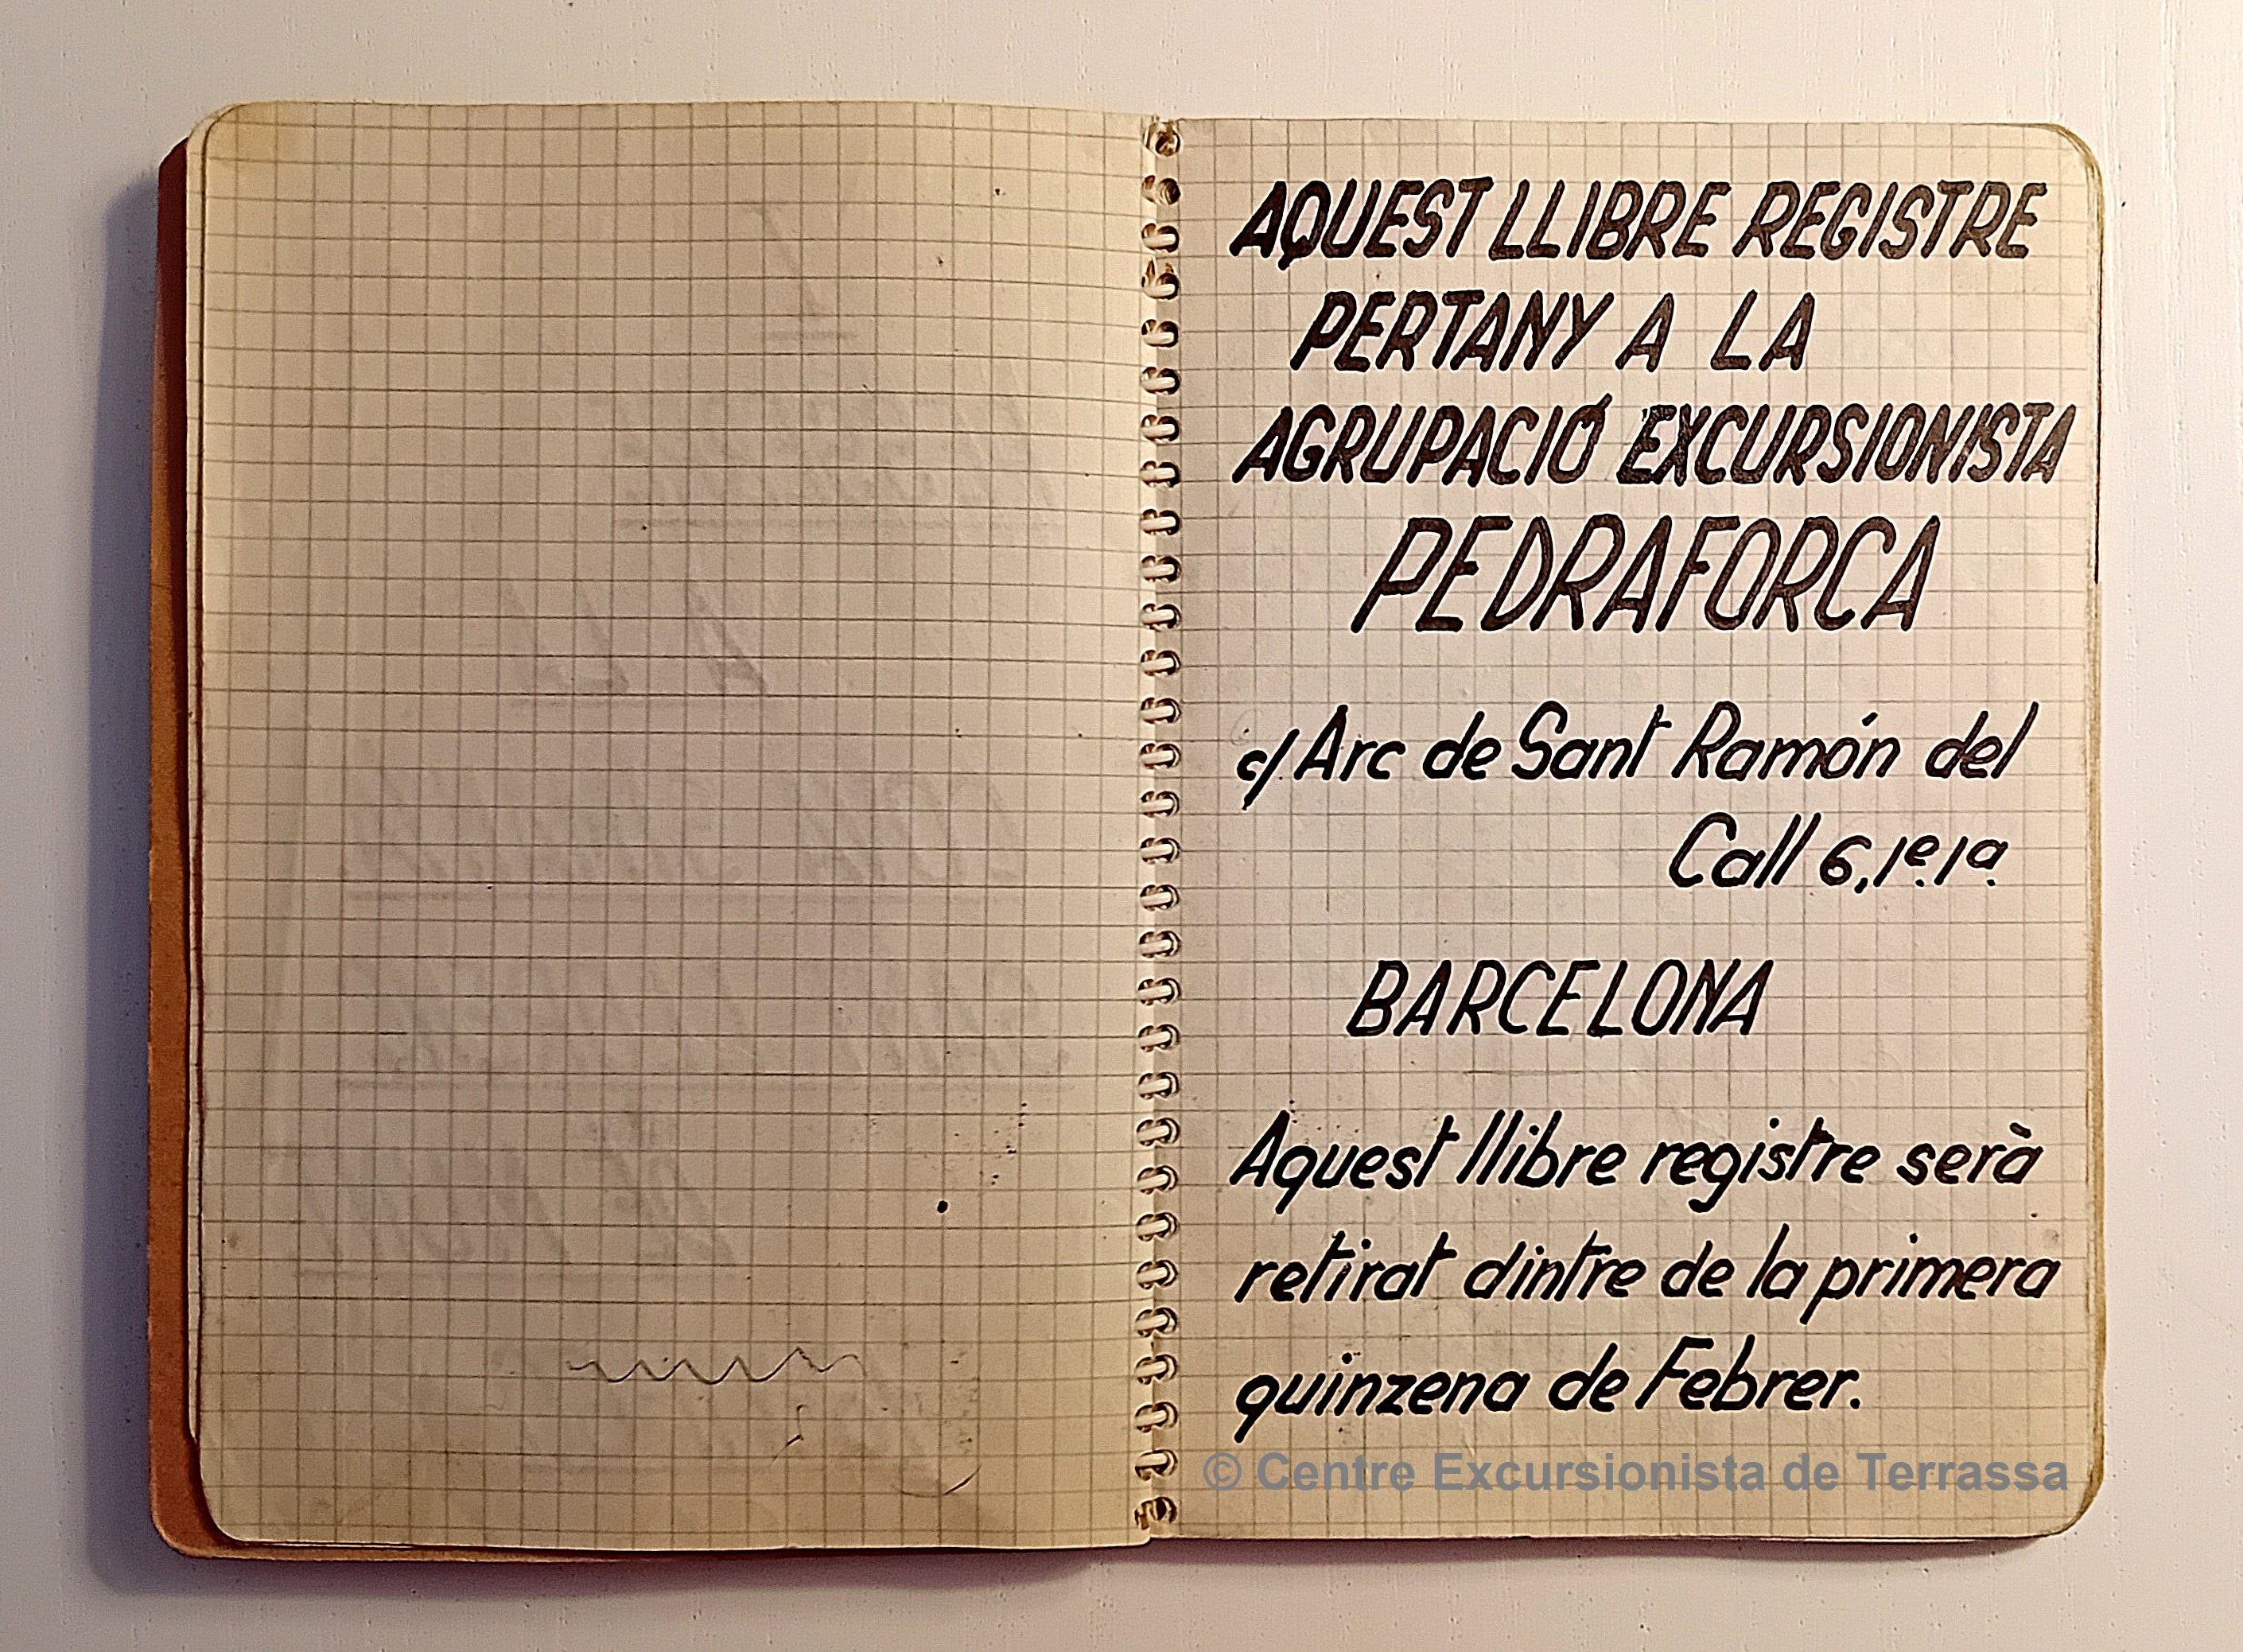 AQUEST LLIBRE REGISTRE
PERTANY A LA
AGRUPACIÓ EXCURSIONISTA
PEDRAFORCA
c/ Arc de Sant Ramón del
Call 6, 1e. 1a.
BARCELONA
Aquest llibre registre serà
retirat dintre de la primera
quinzena de Febrer.
© Centre Excursionista de Terrassa